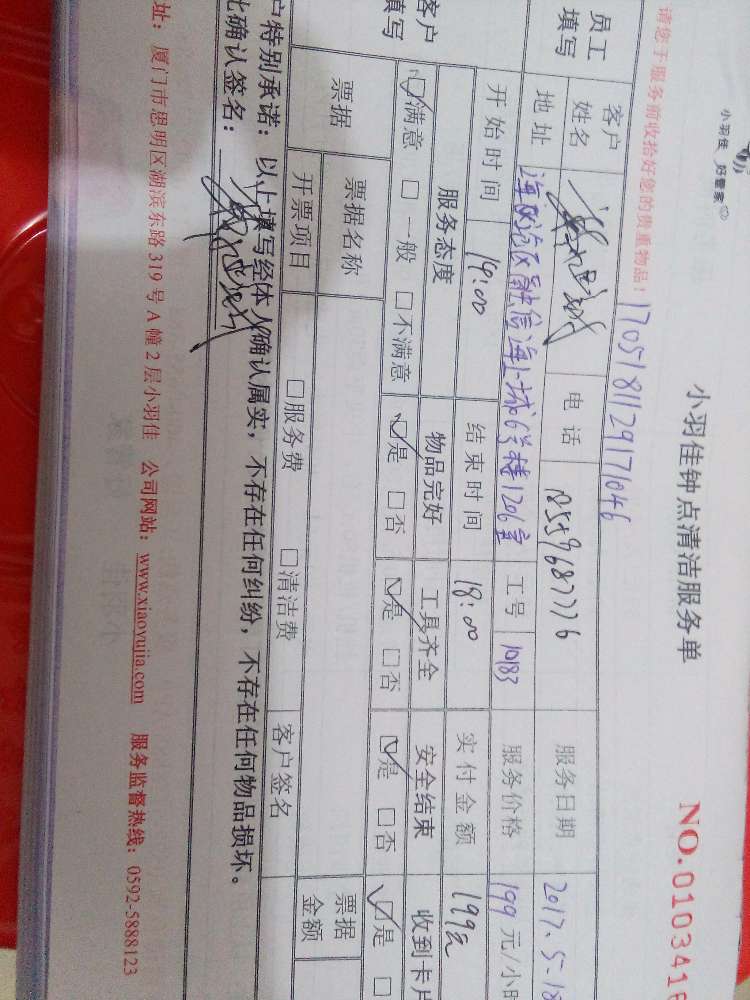 小羽佳 好管家
小羽佳钟点清洁服务单
NO.010341
请您于服务前收拾好您的贵重物品！
1705181129171046
员工填写
客户姓名
电话
服务日期 2017.5-18
地址 海沧区融信海上城6号楼1206室
工号 10183
服务价格 199 元/小时
开始时间 14:00
结束时间 18:00
实付金额 199元
客户填写
服务态度 物品完好 工具齐全 安全结束 收到卡片
☑满意 □一般 □不满意 ☑是 □否 ☑是 □否 ☑是 □否 ☑是 □
票据 票据名称 票据金额
开票项目 □服务费 □清洁费 客户签名
户特别承诺：以上填写经本人确认属实，不存在任何纠纷，不存在任何物品损坏。
此确认签名：
址：厦门市思明区湖滨东路 319 号 A 幢 2 层小羽佳 公司网站：www.xiaoyujia.com 服务监督热线：0592-5888123